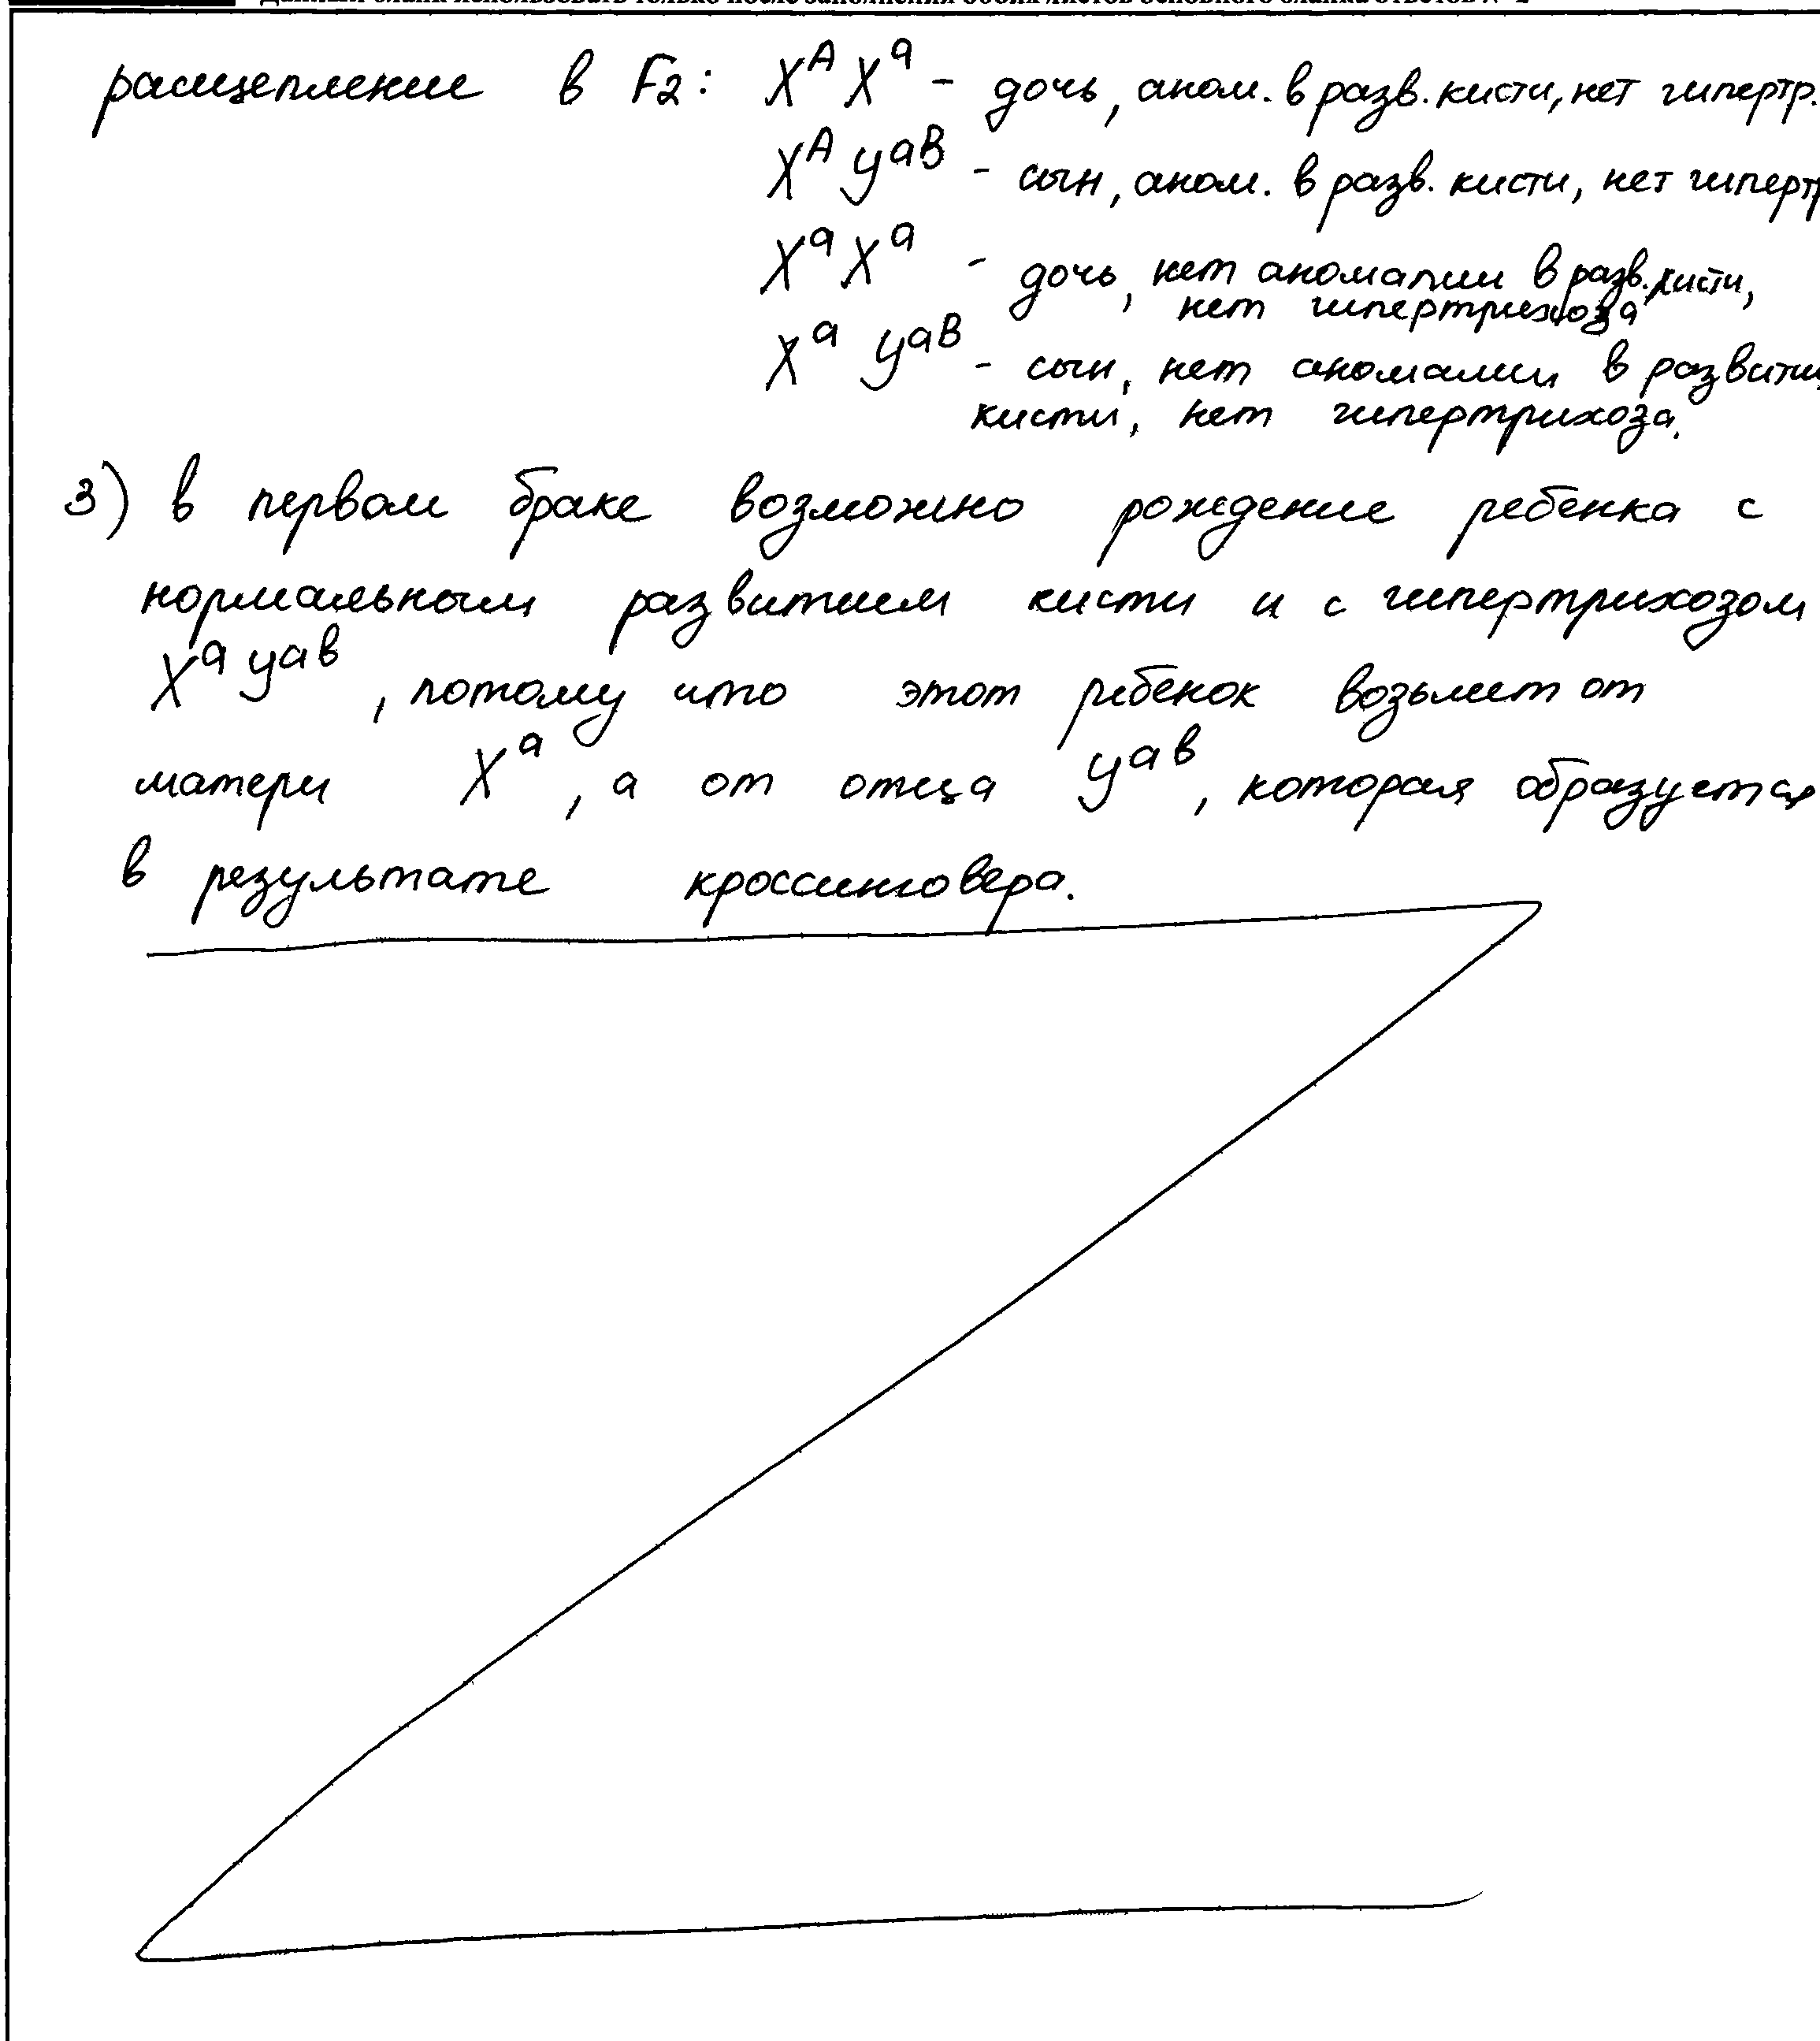 Данный бланк использовать только после заполнения обоих листов основного бланка ответов № 2
расщепление в F2: X^A X^a - дочь, аном. в разв. кисти, нет гипертр.
X^A Y^aB - сын, аном. в разв. кисти, нет гипертр
X^a X^a - дочь, нет аномалии в разв. кисти,
нет гипертрихоза
X^a Y^aB - сын, нет аномалии в развити
кисти, нет гипертрихоза.
3) в первом браке возможно рождение ребенка с
нормальным развитием кисти и с гипертрихозом
X^a Y^ab, потому что этот ребенок возьмет от
матери X^a, а от отца Y^ab, которая образуется
в результате кроссинговера.